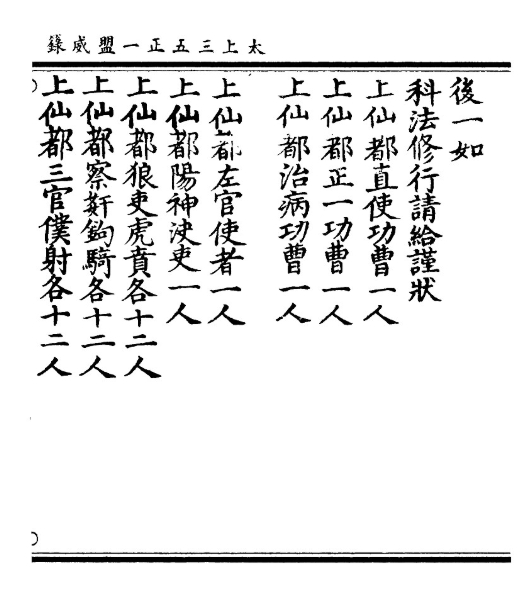 太上三五正一盟威籙
後一如
科法修行請給謹狀
上仙都直使功曹一人
上仙都正一功曹一人
上仙都治病功曹一人
上仙都左官使者一人
上仙都陽神決吏一人
上仙都狼吏虎賁各十二人
上仙都察姧鉤騎各十二人
上仙都三官僕射各十二人